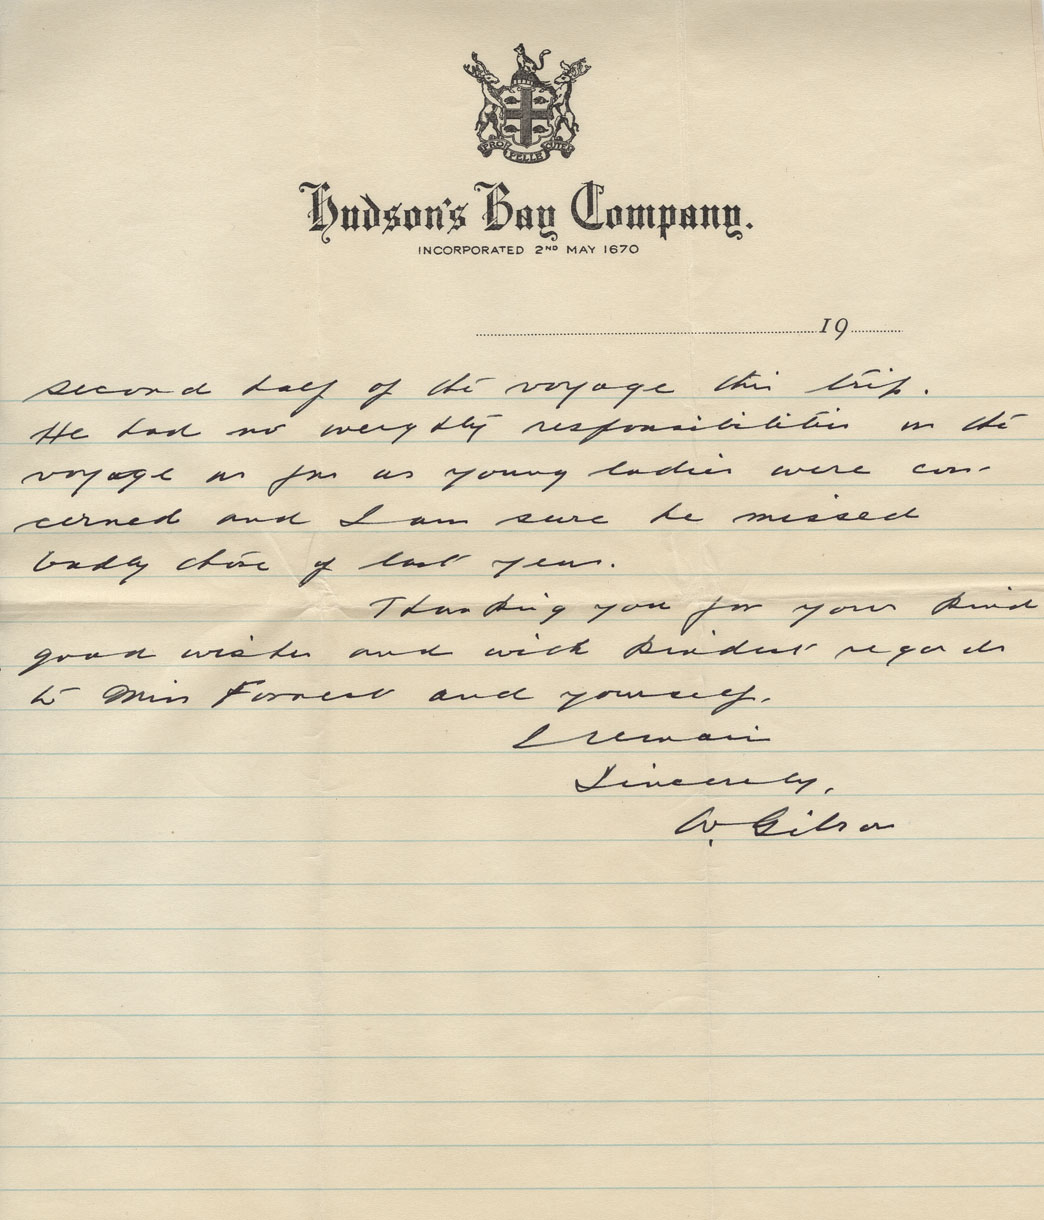 PRO PELLE CUTEM
Hudson's Bay Company.
INCORPORATED 2ND MAY 1670
19
second half of the voyage this trip.
He had no weighty responsibilities on the
voyage as far as young ladies were con-
cerned and I am sure he missed
badly those of last year.
Thanking you for your kind
good wishes and with kindest regards
to Miss Forrest and yourself.
I remain
Sincerely,
W. Gibson